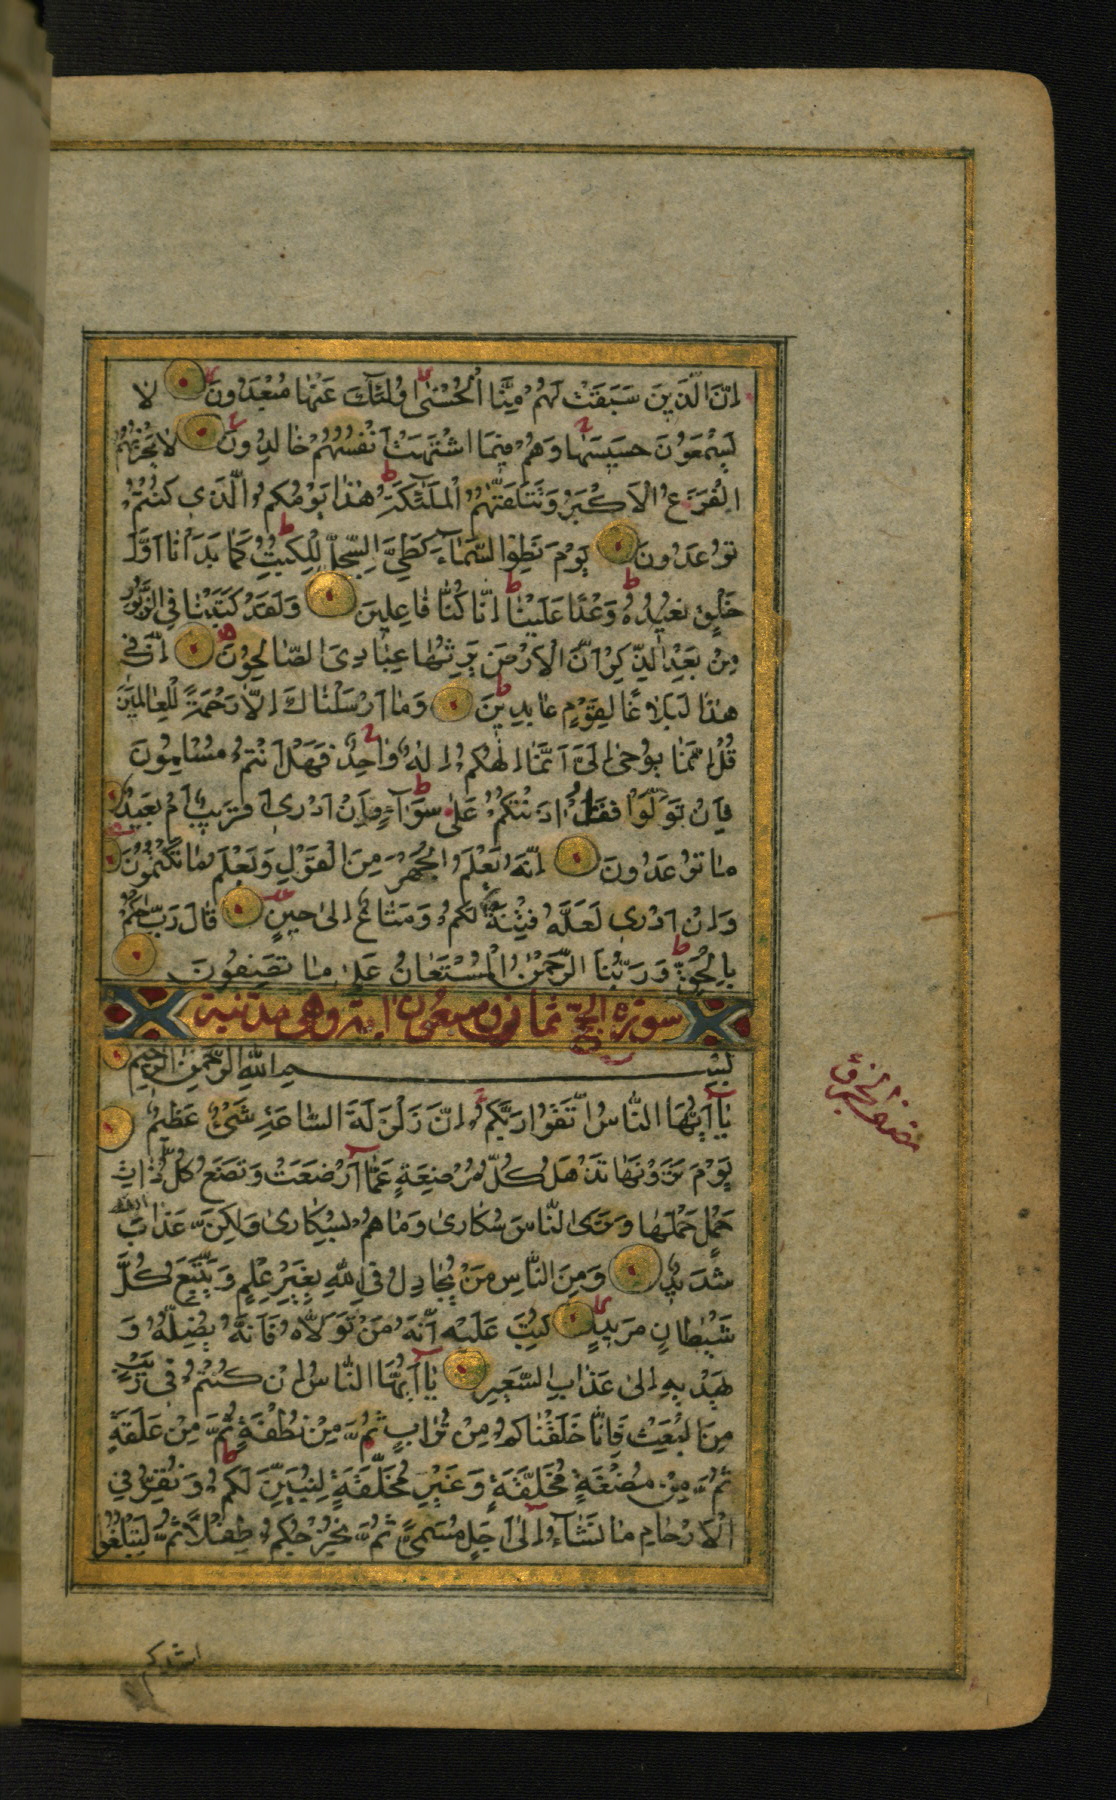 اِنَّ الَّذينَ سَبَقَتْ لَهُمْ مِنَّا الْحُسْنٰى اُولٰئِكَ عَنْهٰا مُبْعَدُونَ لا
يَسْمَعُونَ حَسيسَهٰا وَهُمْ فيمَا اشْتَهَتْ اَنْفُسُهُمْ خٰالِدُونَ لا يَحْزُنُهُمُ
الْفَزَعُ الْاَكْبَرُ وَتَتَلَقّٰيهُمُ الْمَلٰٓئِكَةُ هٰذٰا يَوْمُكُمُ الَّذي كُنْتُمْ
تُوعَدُونَ يَوْمَ نَطْوِي السَّمٰآءَ كَطَيِّ السِّجِلِّ لِلْكُتُبِ كَمٰا بَدَأْنٰا اَوَّلَ
خَلْقٍ نُعيدُهُ وَعْدًا عَلَيْنٰا اِنّٰا كُنّٰا فٰاعِلينَ وَلَقَدْ كَتَبْنٰا فِي الزَّبُورِ
مِنْ بَعْدِ الذِّكْرِ اَنَّ الْاَرْضَ يَرِثُهٰا عِبٰادِيَ الصّٰالِحُونَ اِنَّ في
هٰذٰا لَبَلاٰغًا لِقَوْمٍ عٰابِدينَ وَمٰا اَرْسَلْنٰاكَ اِلّٰا رَحْمَةً لِلْعٰالَمينَ
قُلْ اِنَّمٰا يُوحٰى اِلَيَّ اَنَّمٰا اِلٰهُكُمْ اِلٰهٌ وٰاحِدٌ فَهَلْ اَنْتُمْ مُسْلِمُونَ
فَاِنْ تَوَلَّوْا فَقُلْ اٰذَنْتُكُمْ عَلٰى سَوٰآءٍ وَاِنْ اَدْري اَقَريبٌ اَمْ بَعيدٌ
مٰا تُوعَدُونَ اِنَّهُ يَعْلَمُ الْجَهْرَ مِنَ الْقَوْلِ وَيَعْلَمُ مٰا تَكْتُمُونَ
وَاِنْ اَدْري لَعَلَّهُ فِتْنَةٌ لَكُمْ وَمَتٰاعٌ اِلىٰ حينٍ قٰالَ رَبِّ احْكُمْ
بِالْحَقِّ وَرَبُّنَا الرَّحْمٰنُ الْمُسْتَعٰانُ عَلىٰ مٰا تَصِفُونَ
سورة الحج ثمان وسبعون اية وهي مدنية
بِسْمِ اللّٰهِ الرَّحْمٰنِ الرَّحيمِ
يٰآ اَيُّهَا النّٰاسُ اتَّقُوا رَبَّكُمْ اِنَّ زَلْزَلَةَ السّٰاعَةِ شَيْءٌ عَظيمٌ
يَوْمَ تَرَوْنَهٰا تَذْهَلُ كُلُّ مُرْضِعَةٍ عَمّٰآ اَرْضَعَتْ وَتَضَعُ كُلُّ ذٰاتِ
حَمْلٍ حَمْلَهٰا وَتَرَى النّٰاسَ سُكٰارىٰ وَمٰا هُمْ بِسُكٰارىٰ وَلٰكِنَّ عَذٰابَ اللّٰهِ
شَديدٌ وَمِنَ النّٰاسِ مَنْ يُجٰادِلُ فِي اللّٰهِ بِغَيْرِ عِلْمٍ وَيَتَّبِعُ كُلَّ
شَيْطٰانٍ مَريدٍ كُتِبَ عَلَيْهِ اَنَّهُ مَنْ تَوَلّٰاهُ فَاَنَّهُ يُضِلُّهُ وَ
يَهْديهِ اِلىٰ عَذٰابِ السَّعيرِ يٰآ اَيُّهَا النّٰاسُ اِنْ كُنْتُمْ في رَيْبٍ
مِنَ الْبَعْثِ فَاِنّٰا خَلَقْنٰاكُمْ مِنْ تُرٰابٍ ثُمَّ مِنْ نُطْفَةٍ ثُمَّ مِنْ عَلَقَةٍ
ثُمَّ مِنْ مُضْغَةٍ مُخَلَّقَةٍ وَغَيْرِ مُخَلَّقَةٍ لِنُبَيِّنَ لَكُمْ وَنُقِرُّ فِي
الْاَرْحٰامِ مٰا نَشٰآءُ اِلىٰٓ اَجَلٍ مُسَمًّى ثُمَّ نُخْرِجُكُمْ طِفْلاً ثُمَّ لِتَبْلُغُوا
نصف الجزء
اشدكم